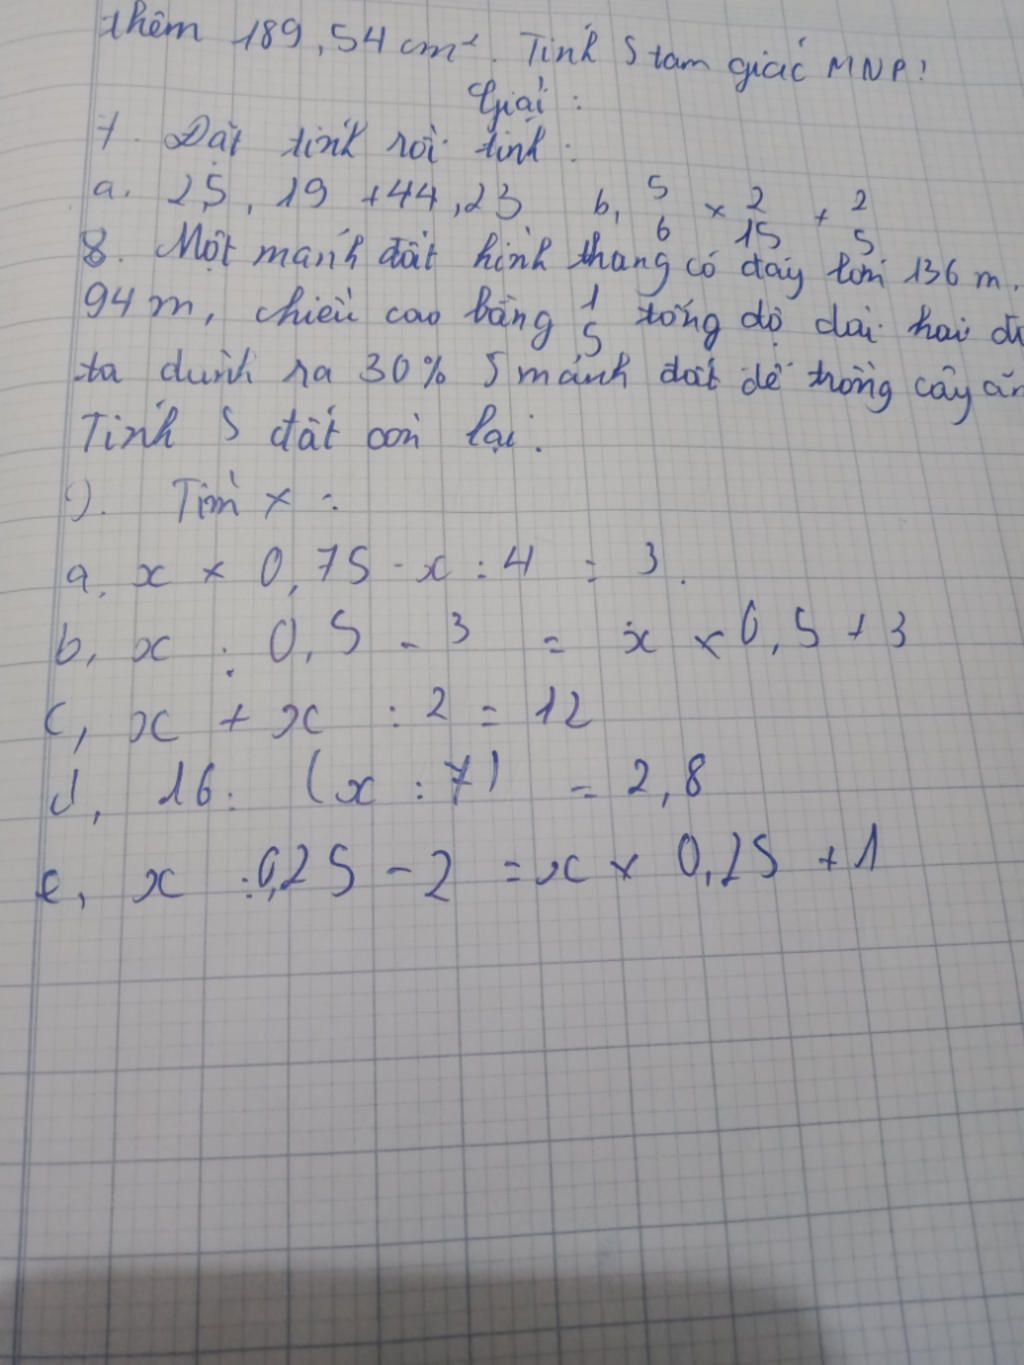 thêm 189,54 cm². Tính S tam giác MNP!
Giải :
7. Đặt tính rồi tính :
a. 25,19 + 44,23 b, 5/6 × 2/15 + 2/5
8. Một mảnh đất hình thang có đáy lớn 136 m,
94 m, chiều cao bằng 1/5 tổng độ dài hai
ta dành ra 30% S mảnh đất để trồng cây ăn
Tính S đất còn lại.
9. Tìm x :
a. x × 0,75 - x : 4 = 3.
b, x : 0,5 - 3 = x × 0,5 + 3
c, x + x : 2 = 12
d, 16 : (x : 7) = 2,8
e, x : 0,25 - 2 = x × 0,25 + 1